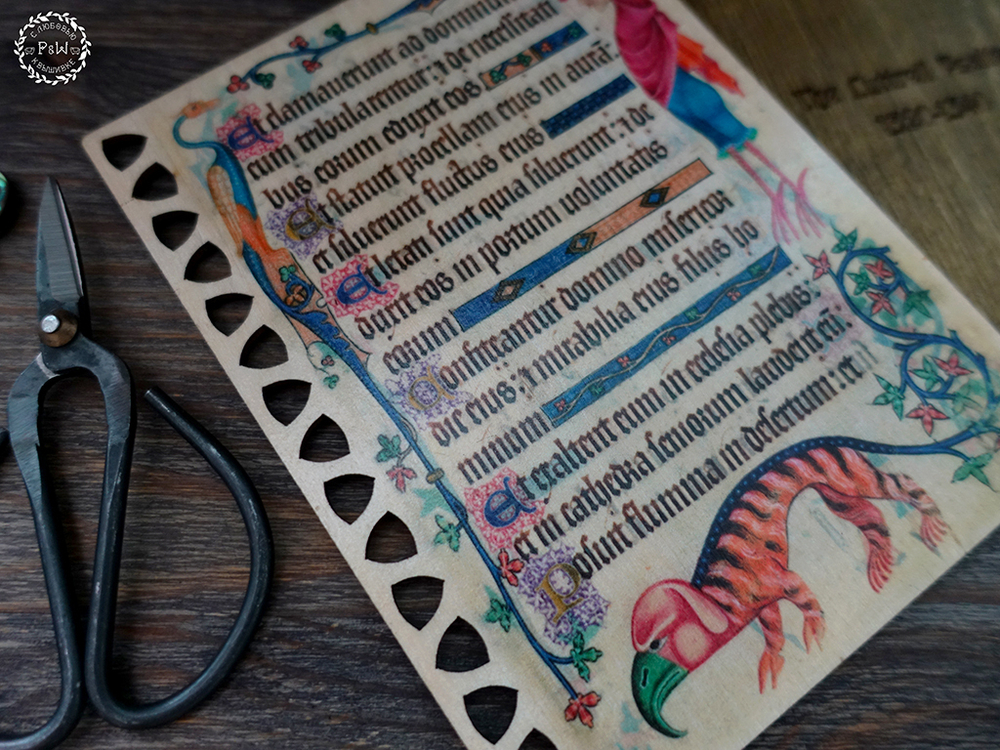 С ЛЮБОВЬЮ
P&W
К ВЫШИВКЕ
Et clamauerunt ad dominum
cum tribularentur : ⁊ de necessitati
bus eorum eduxit eos
Et statuit procellam eius in aurā:
et siluerunt fluctus eius
Et letati sunt quia siluerunt : ⁊ de
duxit eos in portum uoluntatis
eorum
Confiteantur domino miserico
die eius : ⁊ mirabilia eius filiis ho
minum
Et exaltent eum in ecclesia plebis:
et in cathedra seniorum laudent eū.
Posuit flumina in desertum : et